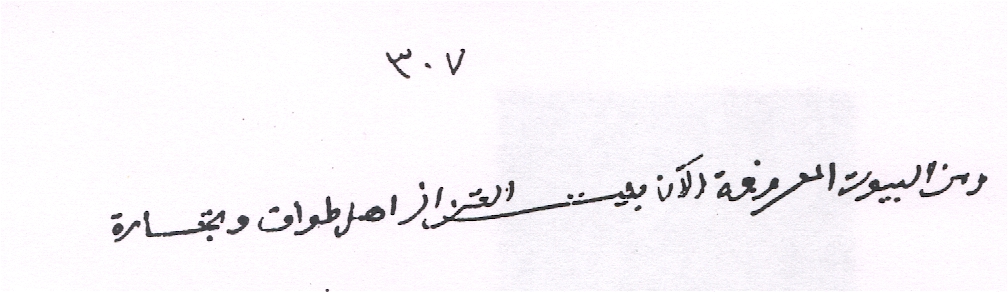 ٣٠٧
ومن البيوت المعروفة الآن بيت القزاز اهل طوافة وتجارة